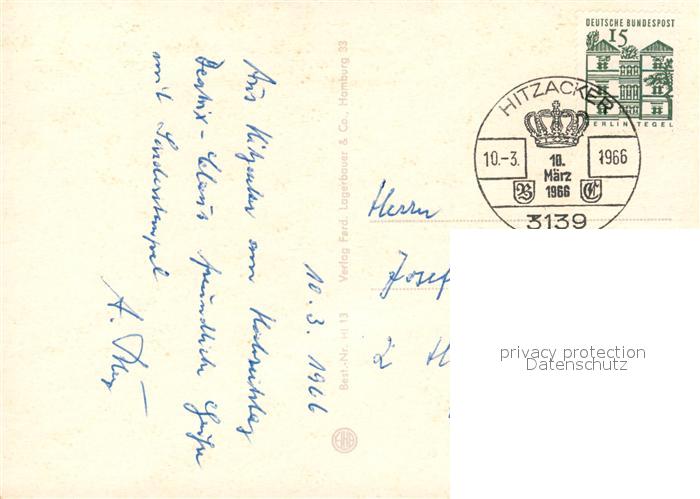 10. 3. 1966
Aus Hitzacker am Hochzeitstag
Beatrix - Claus freundliche Grüße
mit Sonderstempel
A.
Best.-Nr. HI 13 Verlag Ferd. Lagerbauer & Co., Hamburg 33
DEUTSCHE BUNDESPOST
15
BERLIN TEGEL
HITZACKER
10.-3. 10. März 1966 1966
B C
3139
Herrn
Josef
2 H
privacy protection
Datenschutz